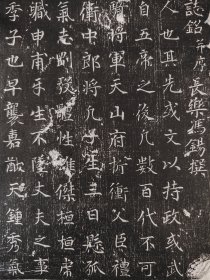 誌銘并序 長樂馮錫撰
人也其先或文以持政或武
自五帝之後凡數百代不可
騎將軍天山府折衝父臣禮
衛中郎將凡子生三日懸弧
氣志剛發體性雄傑桓桓肅
臧申甫手生不墜丈夫之事
季子也早襲嘉猷天鍾秀氣